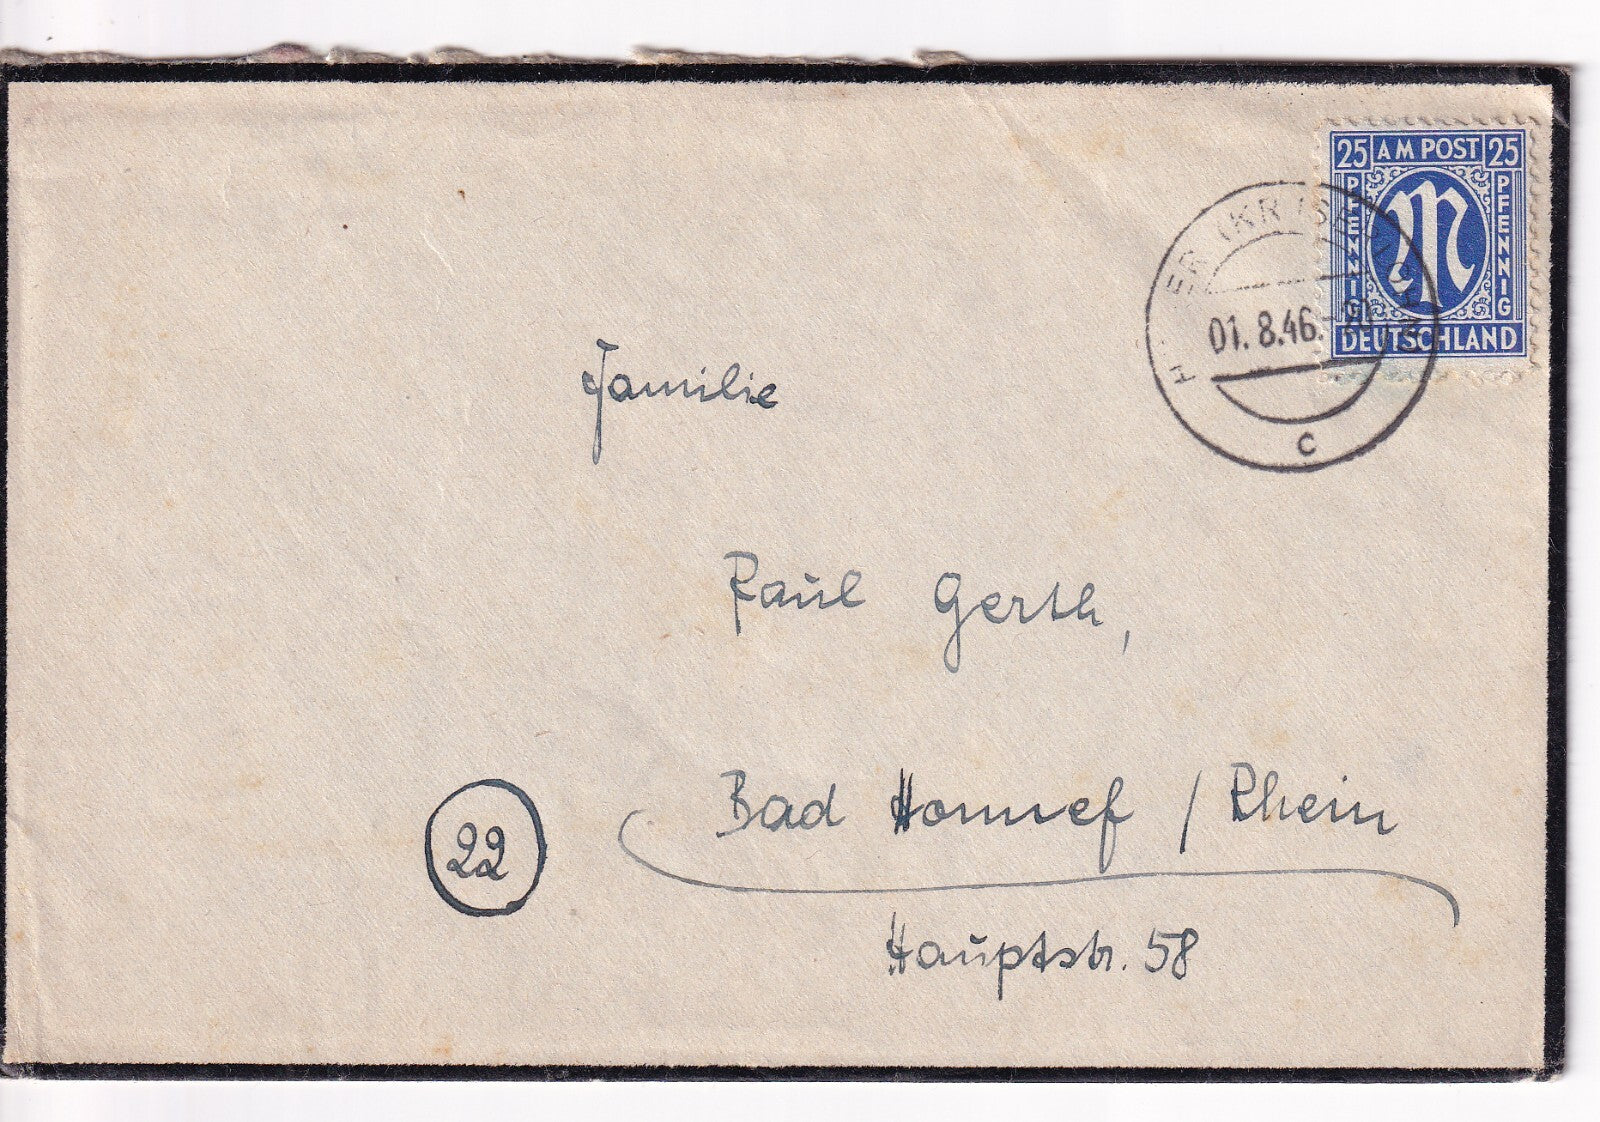 25 AM POST 25
PFENNIG
M
PFENNIG
DEUTSCHLAND
01.8.46.-20
c
Familie
Paul Gerth,
Bad Honnef / Rhein
22
Hauptstr. 58